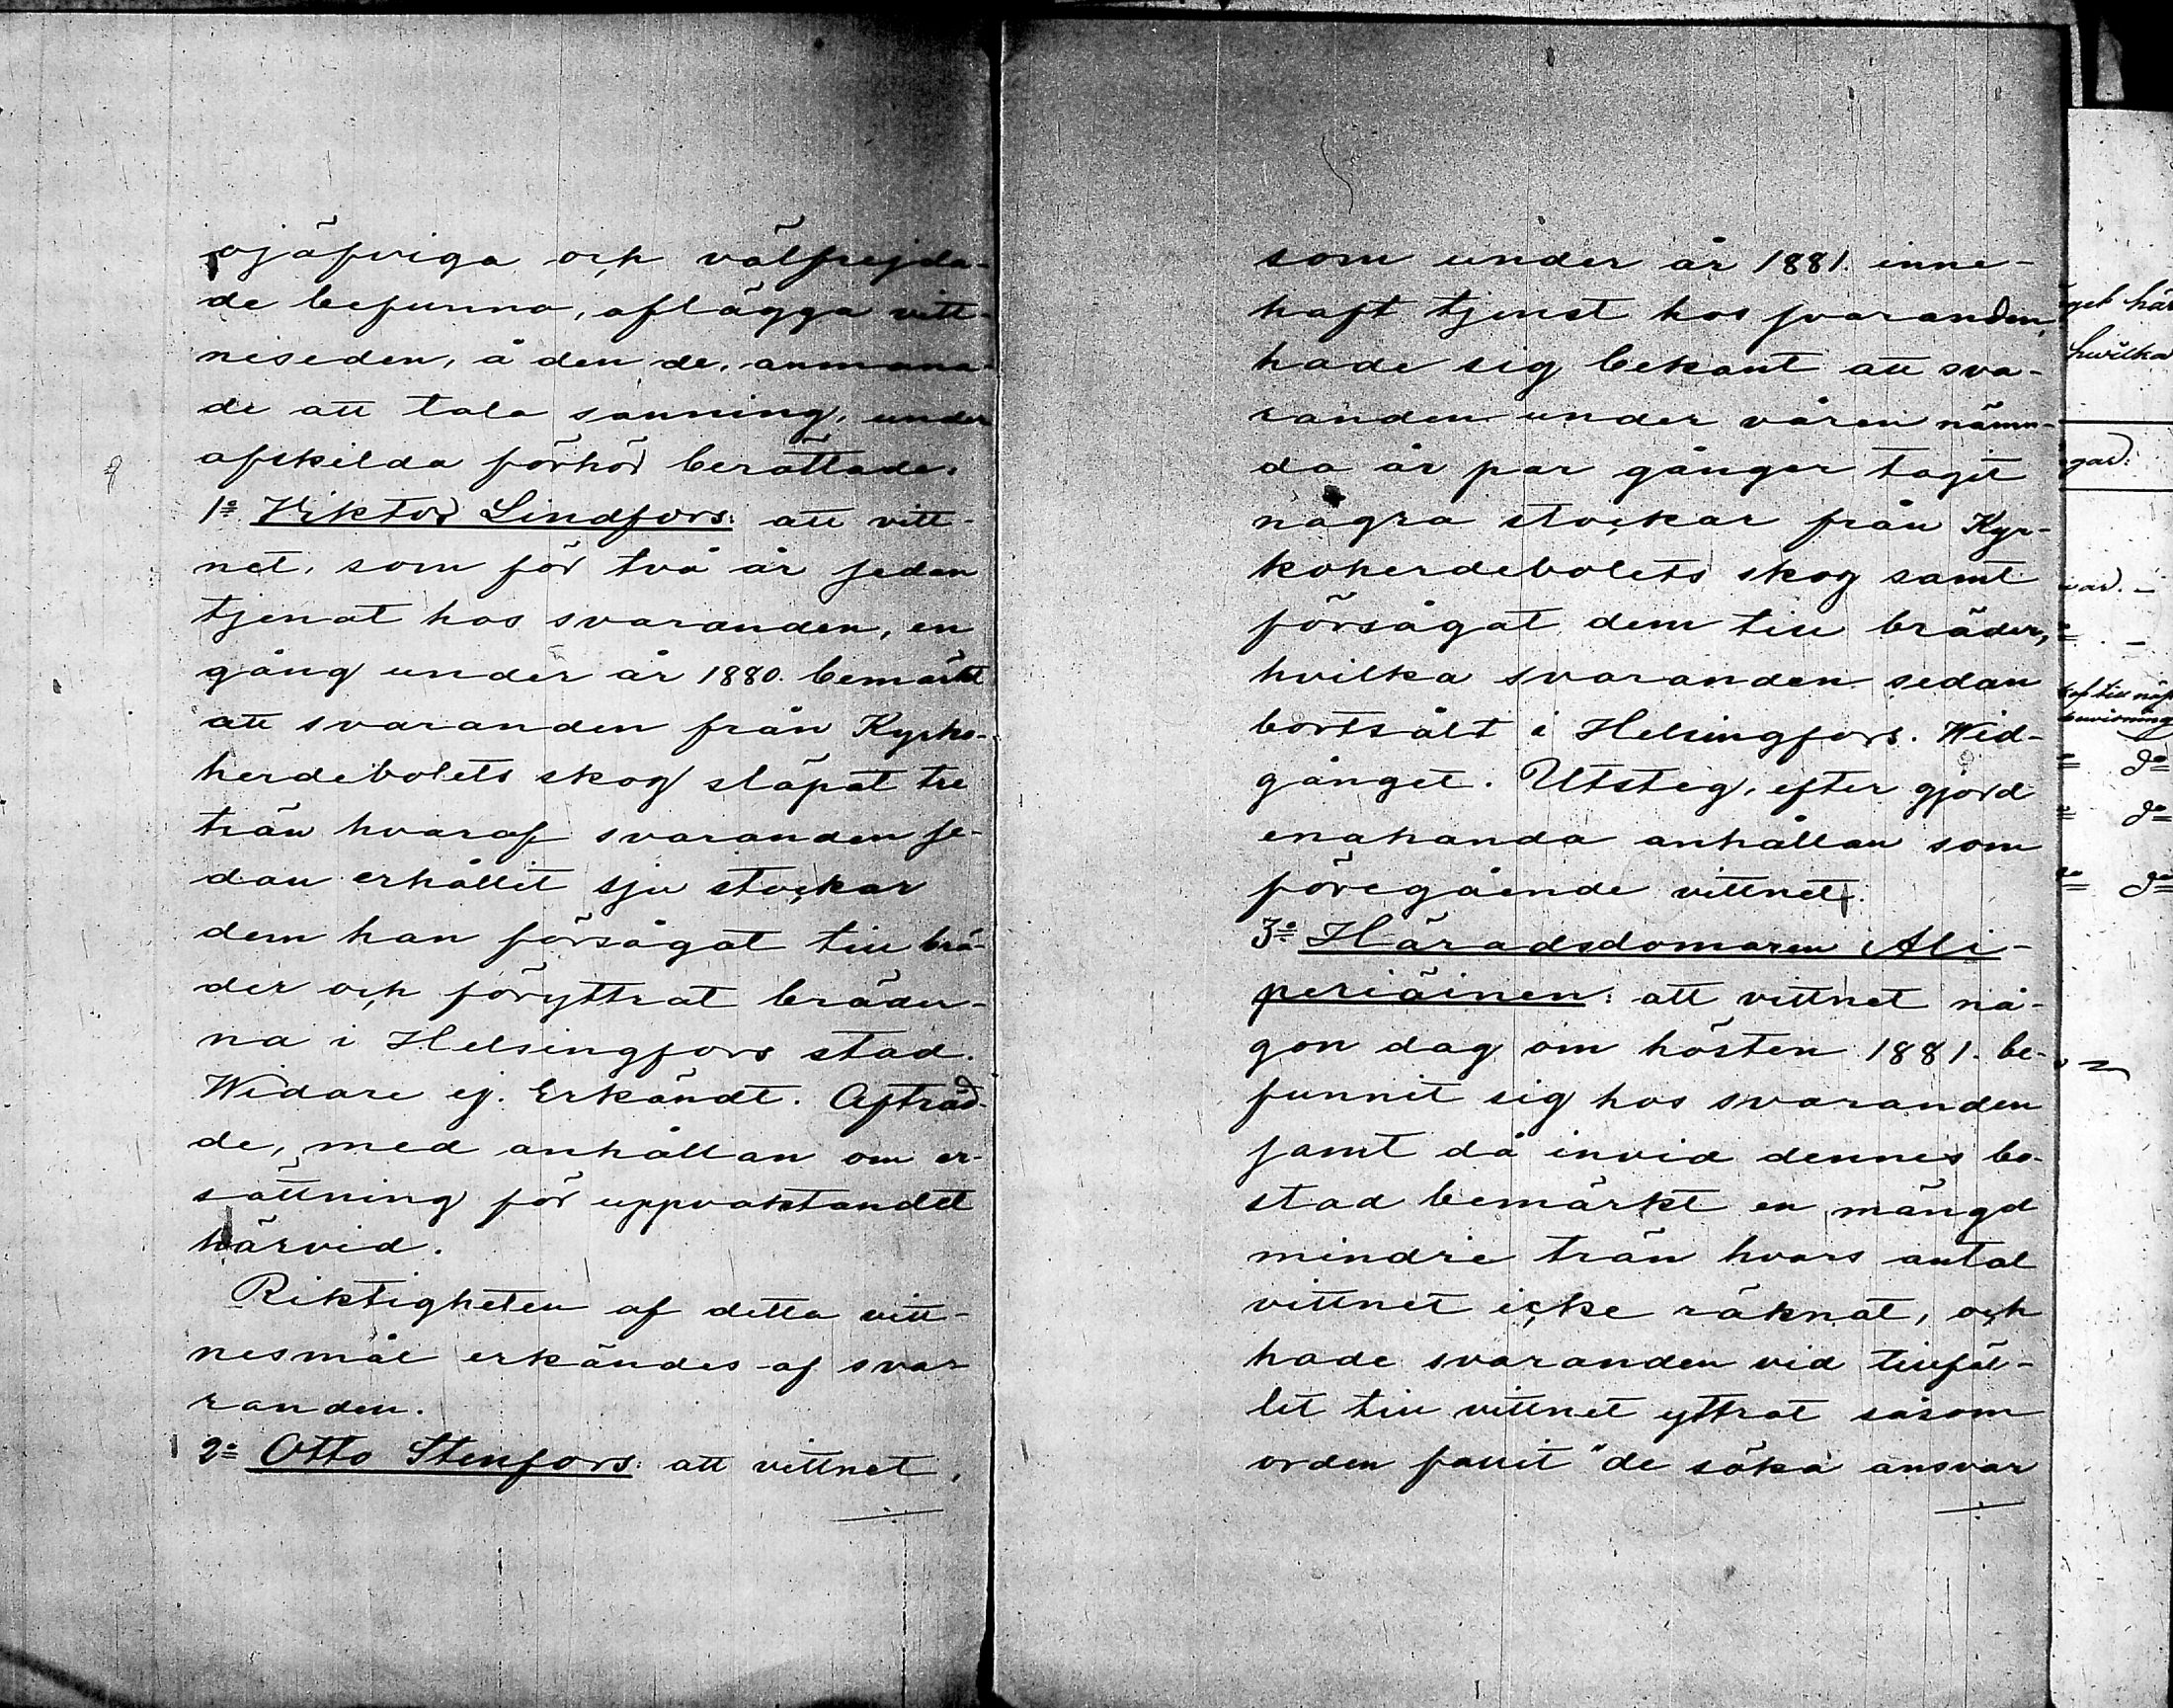 ojäfviga och välfrejda-
de befunna, aflägga vitt-
neseden, å den de, anmana-
de att tala sanning, under
afskilda förhör berättade:
1:o Viktor Lindfors: att vitt-
net, som för två år sedan
tjenat hos svaranden, en
gång under år 1880. bemärkt
att svaranden från Kyrko-
herdebolets skog släpat tre
trän hvaraf svaranden se-
dan erhållit sju stockar
dem han försågat till brä-
der och föryttrat bräder-
na i Helsingfors stad.
Widare ej. Erkändt. Afträd-
de, med anhållan om er-
sättning för uppvaktandet
härvid.
Riktigheten af detta vitt-
nesmål erkändes af sva-
randen.
2:o Otto Stenfors: att vittnet,
som under år 1881. inne-
haft tjenst hos svaranden,
hade sig bekant att sva-
randen under våren nämn-
da år par gånger tagit
några stockar från Kyr-
koherdebolets skog samt
försågat dem till bräder,
hvilka svaranden sedan
bortsålt i Helsingfors. Wid-
gånget. Utsteg, efter gjord
enahanda anhållan som
föregående vittnet.
3:o Häradsdomaren Ali-
periäinen: att vittnet nå-
gon dag om hösten 1881. be-
funnit sig hos svaranden
samt då invid dennes bo-
stad bemärkt en mängd
mindre trän hvars antal
vittnet icke räknat, och
hade svaranden vid tillfäl-
let till vittnet yttrat såsom
orden fallit "de söka ansvar
get här
hvilka
gar: